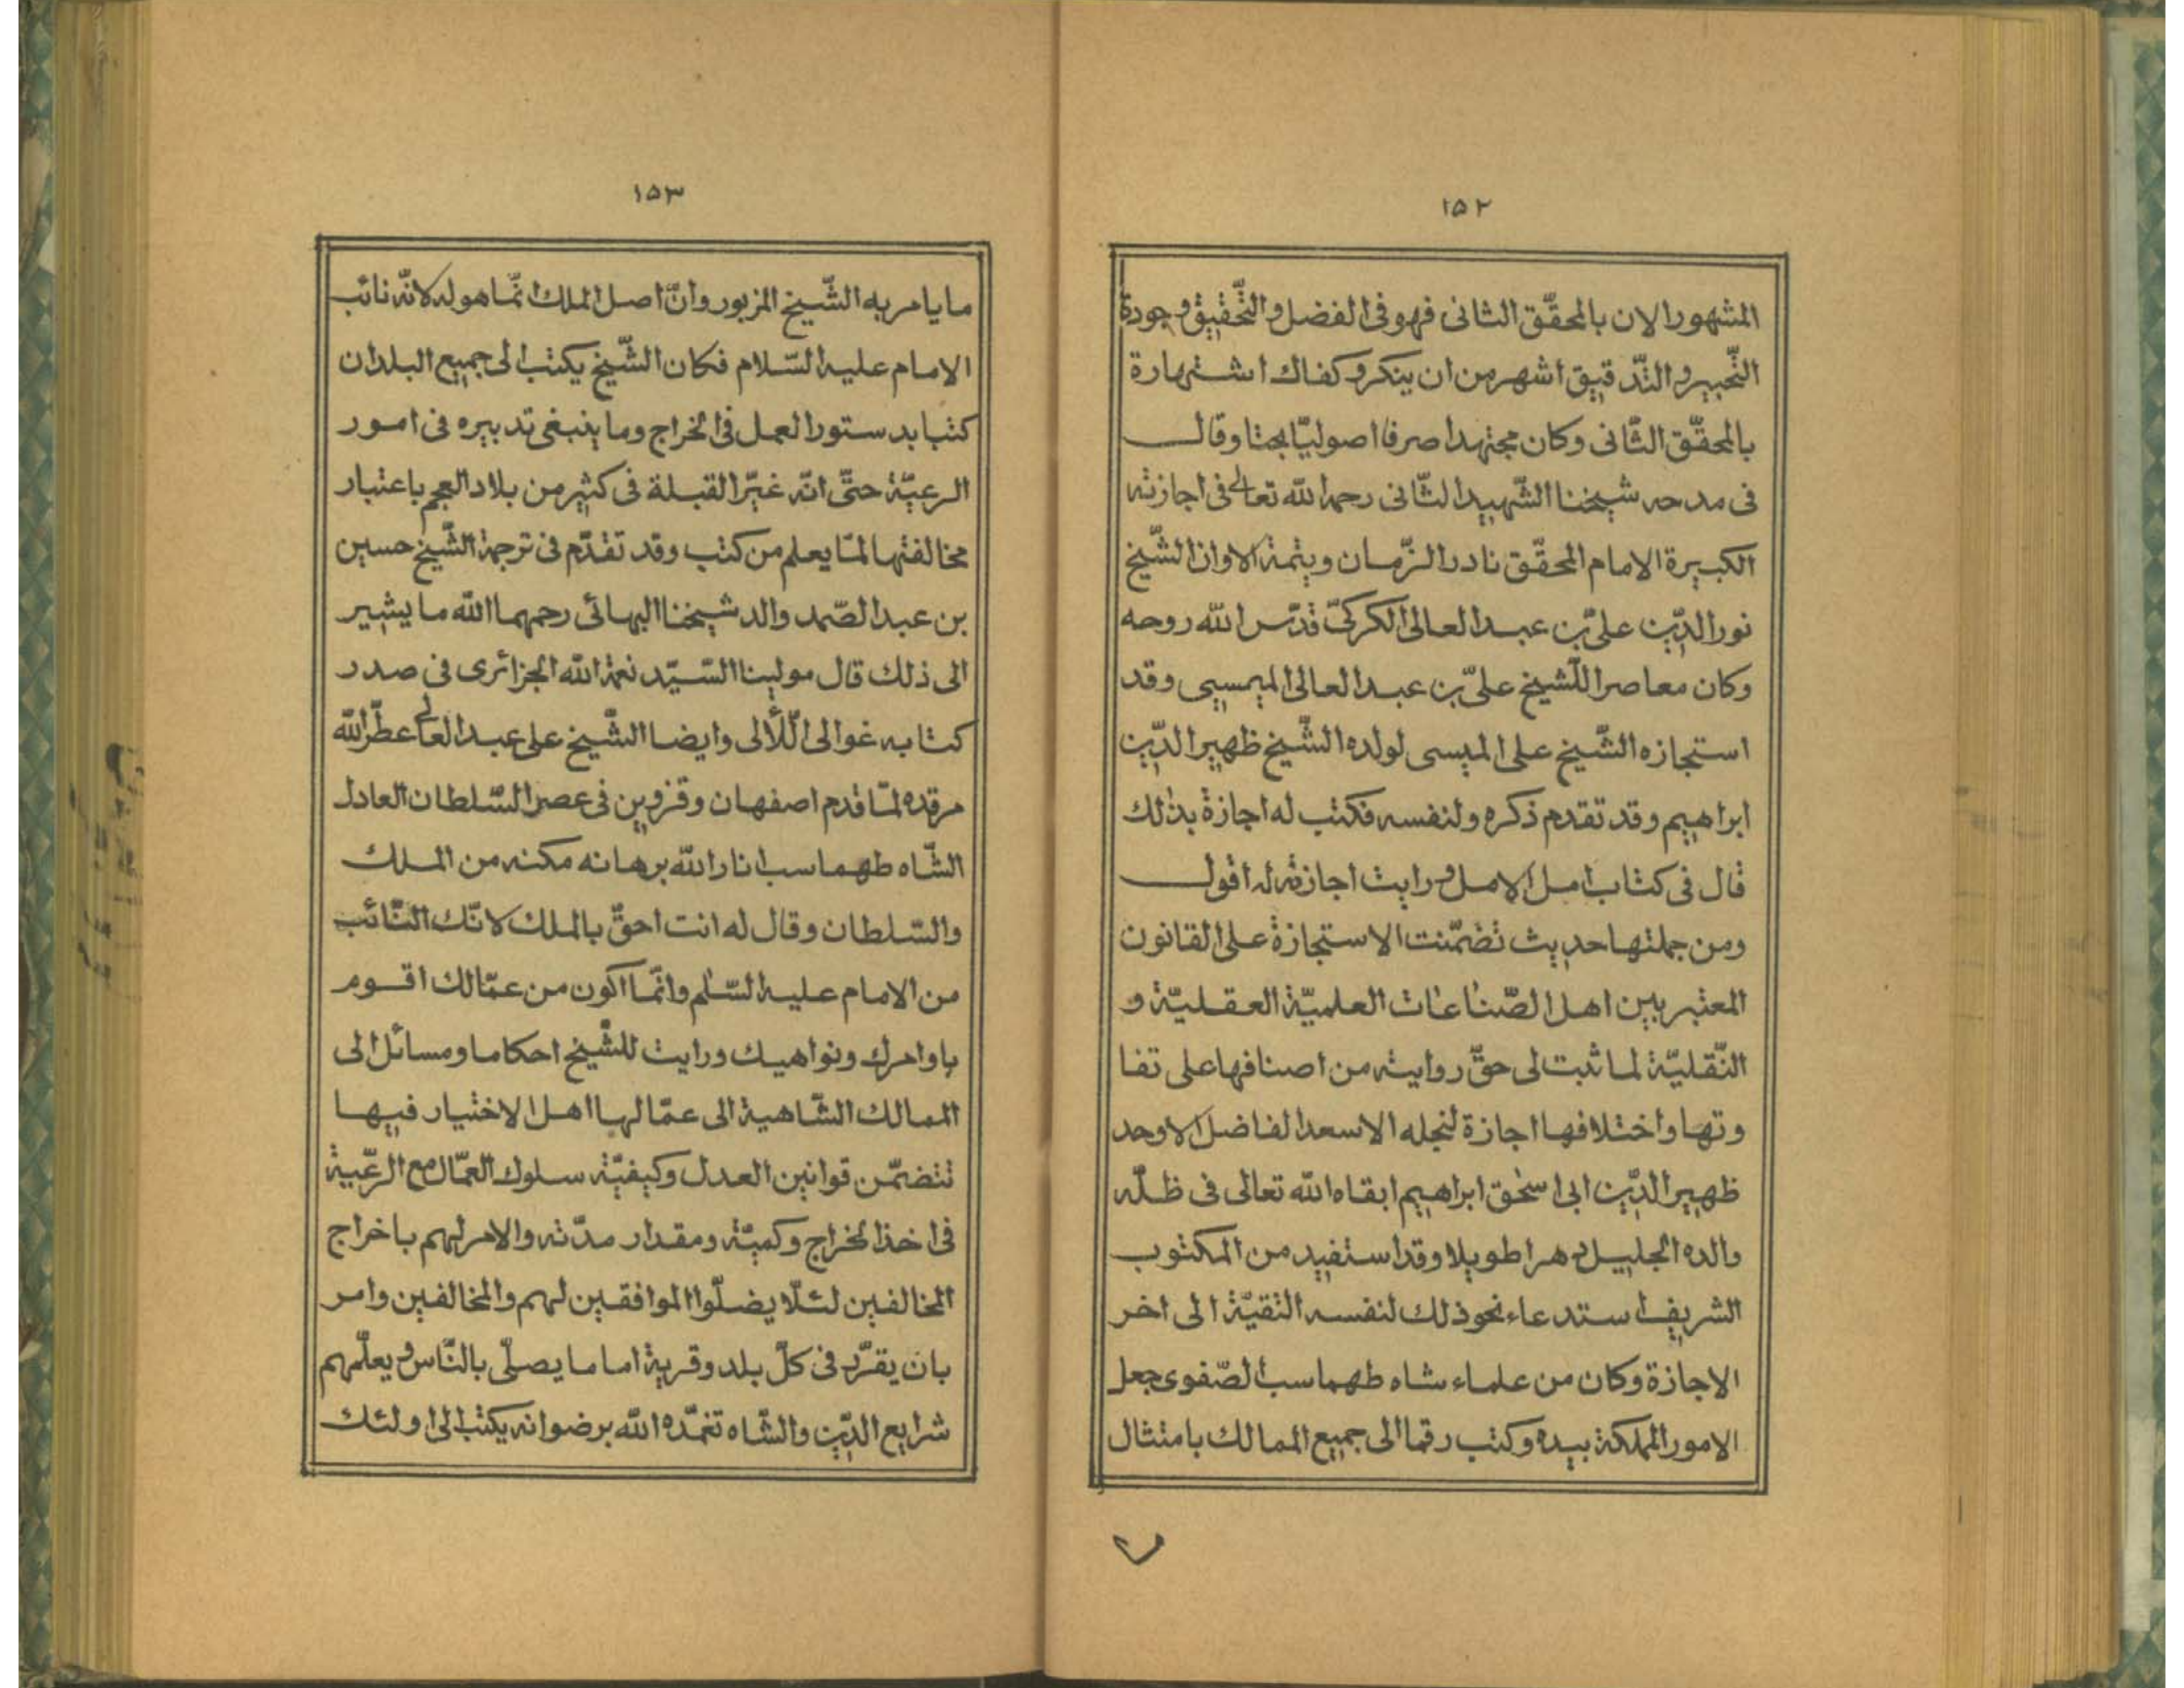 ١٥٢
المشهور الان بالمحقّق الثانى فهو فى الفضل و التّحقيق و جودة
التّحبير و التّدقيق اشهر من ان ينكر و كفاك اشتهارة
بالمحقّق الثّانى وكان مجتهدا صرفا اصوليّا بحتا وقال
فى مدحه شيخنا الشّهيد الثّانى رحمه الله تعالى فى اجازته
الكبيرة الامام المحقّق نادر الزّمان ويتمة الاوان الشّيخ
نور الدّين علىّ بن عبد العالى الكركىّ قدّس الله روحه
وكان معاصرا للشيخ علىّ بن عبد العالى الميسيى وقد
استجازه الشّيخ على الميسى لولده الشّيخ ظهير الدّين
ابراهيم وقد تقدم ذكره ولنفسه فكتب له اجازة بذلك
قال فى كتاب امل الامل و رايت اجازته له اقول
ومن جملتها حديث تضمّنت الاستجازة على القانون
المعتبر بين اهل الصّناعات العلميّة العقليّة و
النّقليّة لما ثبت لى حقّ روايته من اصنافها على تفا
وتها واختلافها اجازة لنجله الاسعد الفاضل الاوحد
ظهير الدّين ابى اسحق ابراهيم ابقاه الله تعالى فى ظلّه
والده الجليل دهرا طويلا وقد استفيد من المكتوب
الشريف استدعاء نحو ذلك لنفسه النقيّة الى اخر
الاجازة وكان من علماء شاه طهماسب الصّفوى جعل
الامور المملكة بيده وكتب رقما الى جميع الممالك بامتثال
١٥٣
ما يامر به الشّيخ المزبور وانّ اصل الملك انّما هو له لانّه نائب
الامام عليه السّلام فكان الشّيخ يكتب الى جميع البلدان
كتبا بدستور العمل فى الخراج وما ينبغى تدبيره فى امور
الرعيّة حتّى انّه غيّر القبلة فى كثير من بلاد العجم باعتبار
مخالفتها لمّا يعلم من كتب وقد تقدّم فى ترجمة الشّيخ حسين
بن عبد الصّمد والد شيخنا البهائى رحمهما الله ما يشير
الى ذلك قال مولينا السّيّد نعمة الله الجزائرى فى صدر
كتابه غوالى اللّألى وايضا الشّيخ على عبد العالى عطّر الله
مرقده لمّا قدم اصفهان وقزوين فى عصر السّلطان العادل
الشّاه طهماسب انار الله برهانه مكنه من الملك
والسّلطان وقال له انت احقّ بالملك لانّك النّائب
من الامام عليه السّلم وانّما اكون من عمّالك اقوم
باوامرك ونواهيك ورايت للشّيخ احكاما ومسائل الى
الممالك الشّاهية الى عمّالها اهل الاختيار فيها
تتضمّن قوانين العدل وكيفيّة سلوك العمّال مع الرّعيية
فى اخذ الخراج وكميّة ومقدار مدّته والامر لهم باخراج
المخالفين لئلّا يضلّوا الموافقين لهم والمخالفين وامر
بان يقرّر فى كلّ بلد وقرية اماما يصلّى بالنّاس و يعلّمهم
شرايع الدّين والشّاه تغمّده الله برضوانه يكتب الى اولئك